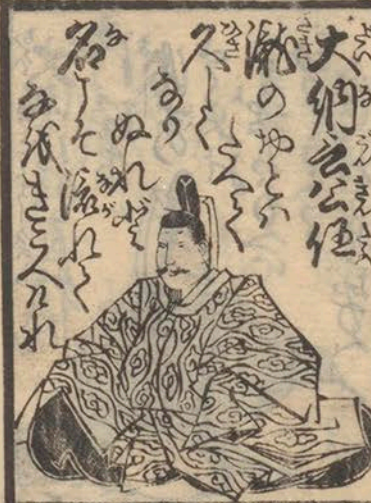 大納言公任
瀧のおとハ
たえて
久しく
なり
ぬれど
名こそ流れて
なほきこえけれ